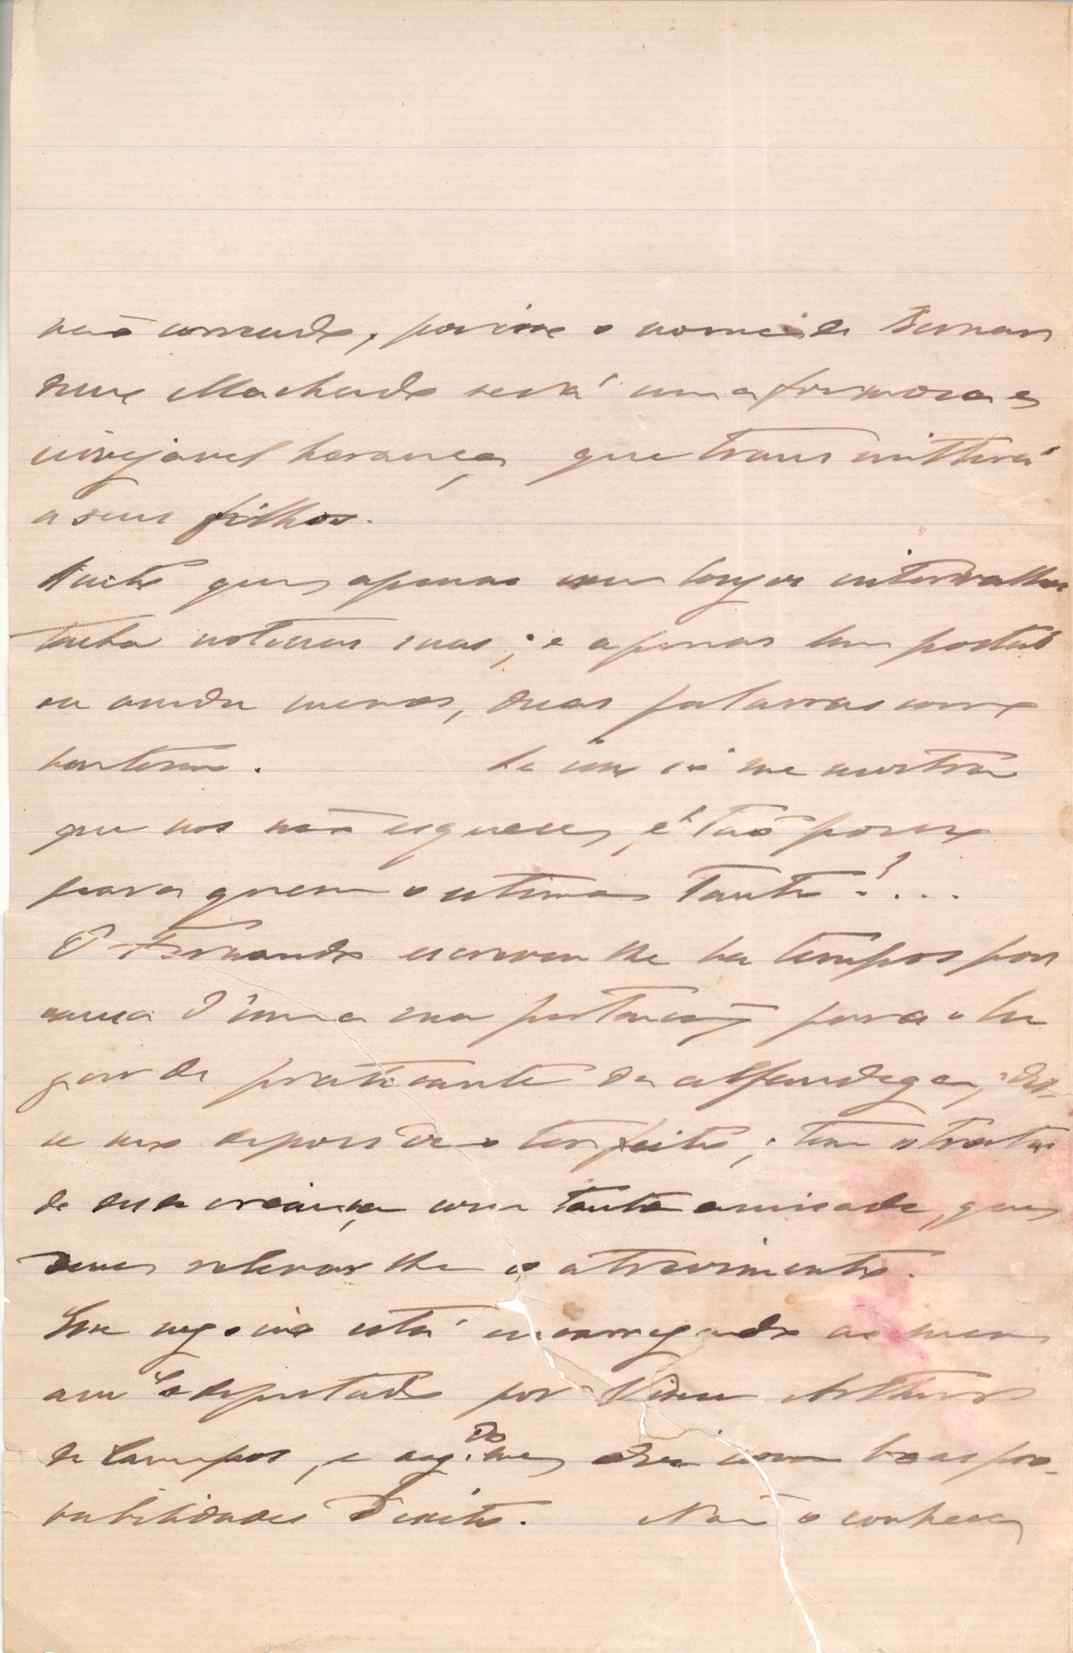 não por isso o nome de Bernar
dino Machado será uma formosa e
invejavel herança, que transmitterá
a seus filhos.
Sinto que apenas em longos intervallos
tenha noticias suas; e apenas um postal
ou ainda menos, duas palavras
que nos não esquece, é tão pouco
para quem o estima tanto!...
O Fernando escreveu lhe ha tempos por
causa d'uma sua pretenção para o lu
gar de praticante da alfandega,
se me depois de o ter feito; tem o tratado
de sua creança com tanta amisade, que
deve relevar lhe o atrevimento.
Esse negocio está encarregado
deputado por Vizeu Arthur
de Campos, e com boas pro-
babilidades d'exito. Não o conhece